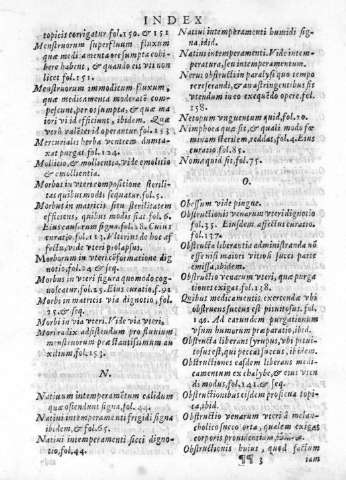 INDEX
topicis corrigatur fol.150. & 151
Menstruorum superfluum fluxum
quæ medicamenta ore sumpta cohi-
bere habent, & quando eis vti non
licet fol.151.
Menstruorum immodicum fluxum,
quæ medicamenta moderatè com-
pescunt, per os sumpta, & quæ ma-
iori vi id efficiunt, ibidem. Quæ
verò valētēr id operantur. fol.153
Mercurialis herba ventrem dumta-
xat purgat fol.124.
Molitio, & mollientia. vide emolitio
& emollientia.
Morbus in vteri compositione sterili-
tas quibus modis sequatur. fol.5.
Morbus in matricis situ sterilitatem
efficiens, quibus modis fiat fol.6.
Eius causarum signa fol.28. Cuius
curatio fol.123. Vlterius de hoc af-
fectu, vide vteri prolapsus.
Morborum in vteri cōformatione dig
notio. fol.24 & seq.
Morbus in vteri figura quemodo cog-
noscatur. fol.25. Eius curatio. f.91
Morb in matricis via dignotio, fol.
25. & seq.
Morbi in via vteri. Vide via vteri,
Mori radix adjistendum profluuium
menstruorum præstantissimum au
xilium fol.153.
N.
Natiuum intemperamētum calidum
quæ ostendunt signa. fol.44.
Natiui intemperamenti frigidi signa
ibidem, & fol.65.
Natiui intemperamenti sicci digno-
tio, fol.44.
Natiui intemperamenti humidi sig-
na, ibid.
Natiui intemperamenti. Vide intem-
peratura, seu intemperamentum.
Nerui obstructi in paralysi quo tempo
re reserandi, & an astringentibus sit
vtendum in eo exequēdo opere. fol.
158.
Netopum vnguentum quid, fol.20.
Nimphoca quæ sit, & quali modo fœ
minam sterilem, reddas, fol.4. Eius
curatio fol.85.
Noma quid sit, fol.75.
O.
Obesum vide pingue.
Obstructionis venarum vteri dignotio
fol.35. Eiusdem affectus curatio.
fol.137.
Obstructa liberantia administranda nō
esse nisi maiori vitiosi succi parte
emissa, ibidem.
Obstructio venarum vteri, quæ purga
tiones exigat. fol.138.
Quibus medicamentis, exercenda vbi
obstruens succus est pituitosus. fol.
140. Ad earundem purgationum
vsum humorum præparatio, ibid.
Obstructa liberans syrupus, vbi pitui-
tosus est, qui peccat succus, ibidem.
Obstructiones easdem liberans medi-
camentum ex chalybe, & eius vten
di modus, fol.141. & seq.
Obstructiones easdem propriis topi-
ca, ibid.
Obstructio venarum vteri à melan-
cholico succo orta, qualem exigat
corporis prouidentiam
Obstructionis huius, quod factum
¶¶ 3
iam